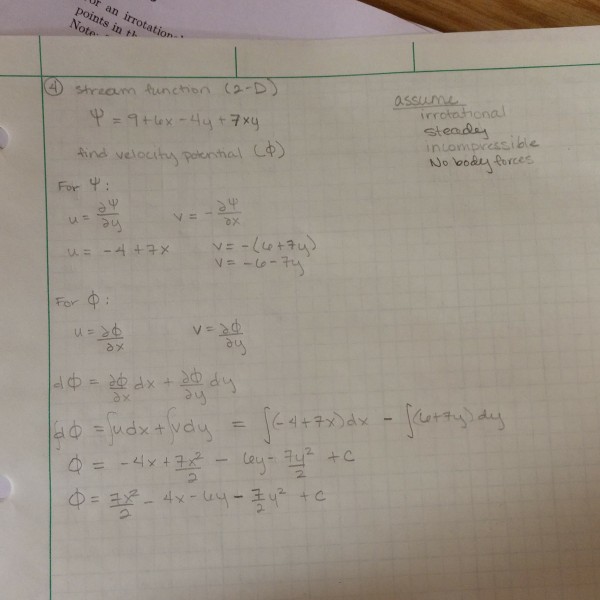 or an irrotational
points in th
Note:
④ stream function (2-D)
Ψ = 9+6x-4y+7xy
find velocity potential (ϕ)
assume
irrotational
steady
incompressible
No body forces
For Ψ:
u = ∂Ψ/∂y v = -∂Ψ/∂x
u = -4+7x v = -(6+7y)
v = -6-7y
For ϕ:
u = ∂ϕ/∂x v = ∂ϕ/∂y
dϕ = ∂ϕ/∂x dx + ∂ϕ/∂y dy
∫dϕ = ∫udx + ∫vdy = ∫(-4+7x)dx - ∫(6+7y)dy
ϕ = -4x + 7x²/2 - 6y - 7y²/2 + C
ϕ = 7x²/2 - 4x - 6y - 7/2 y² + C